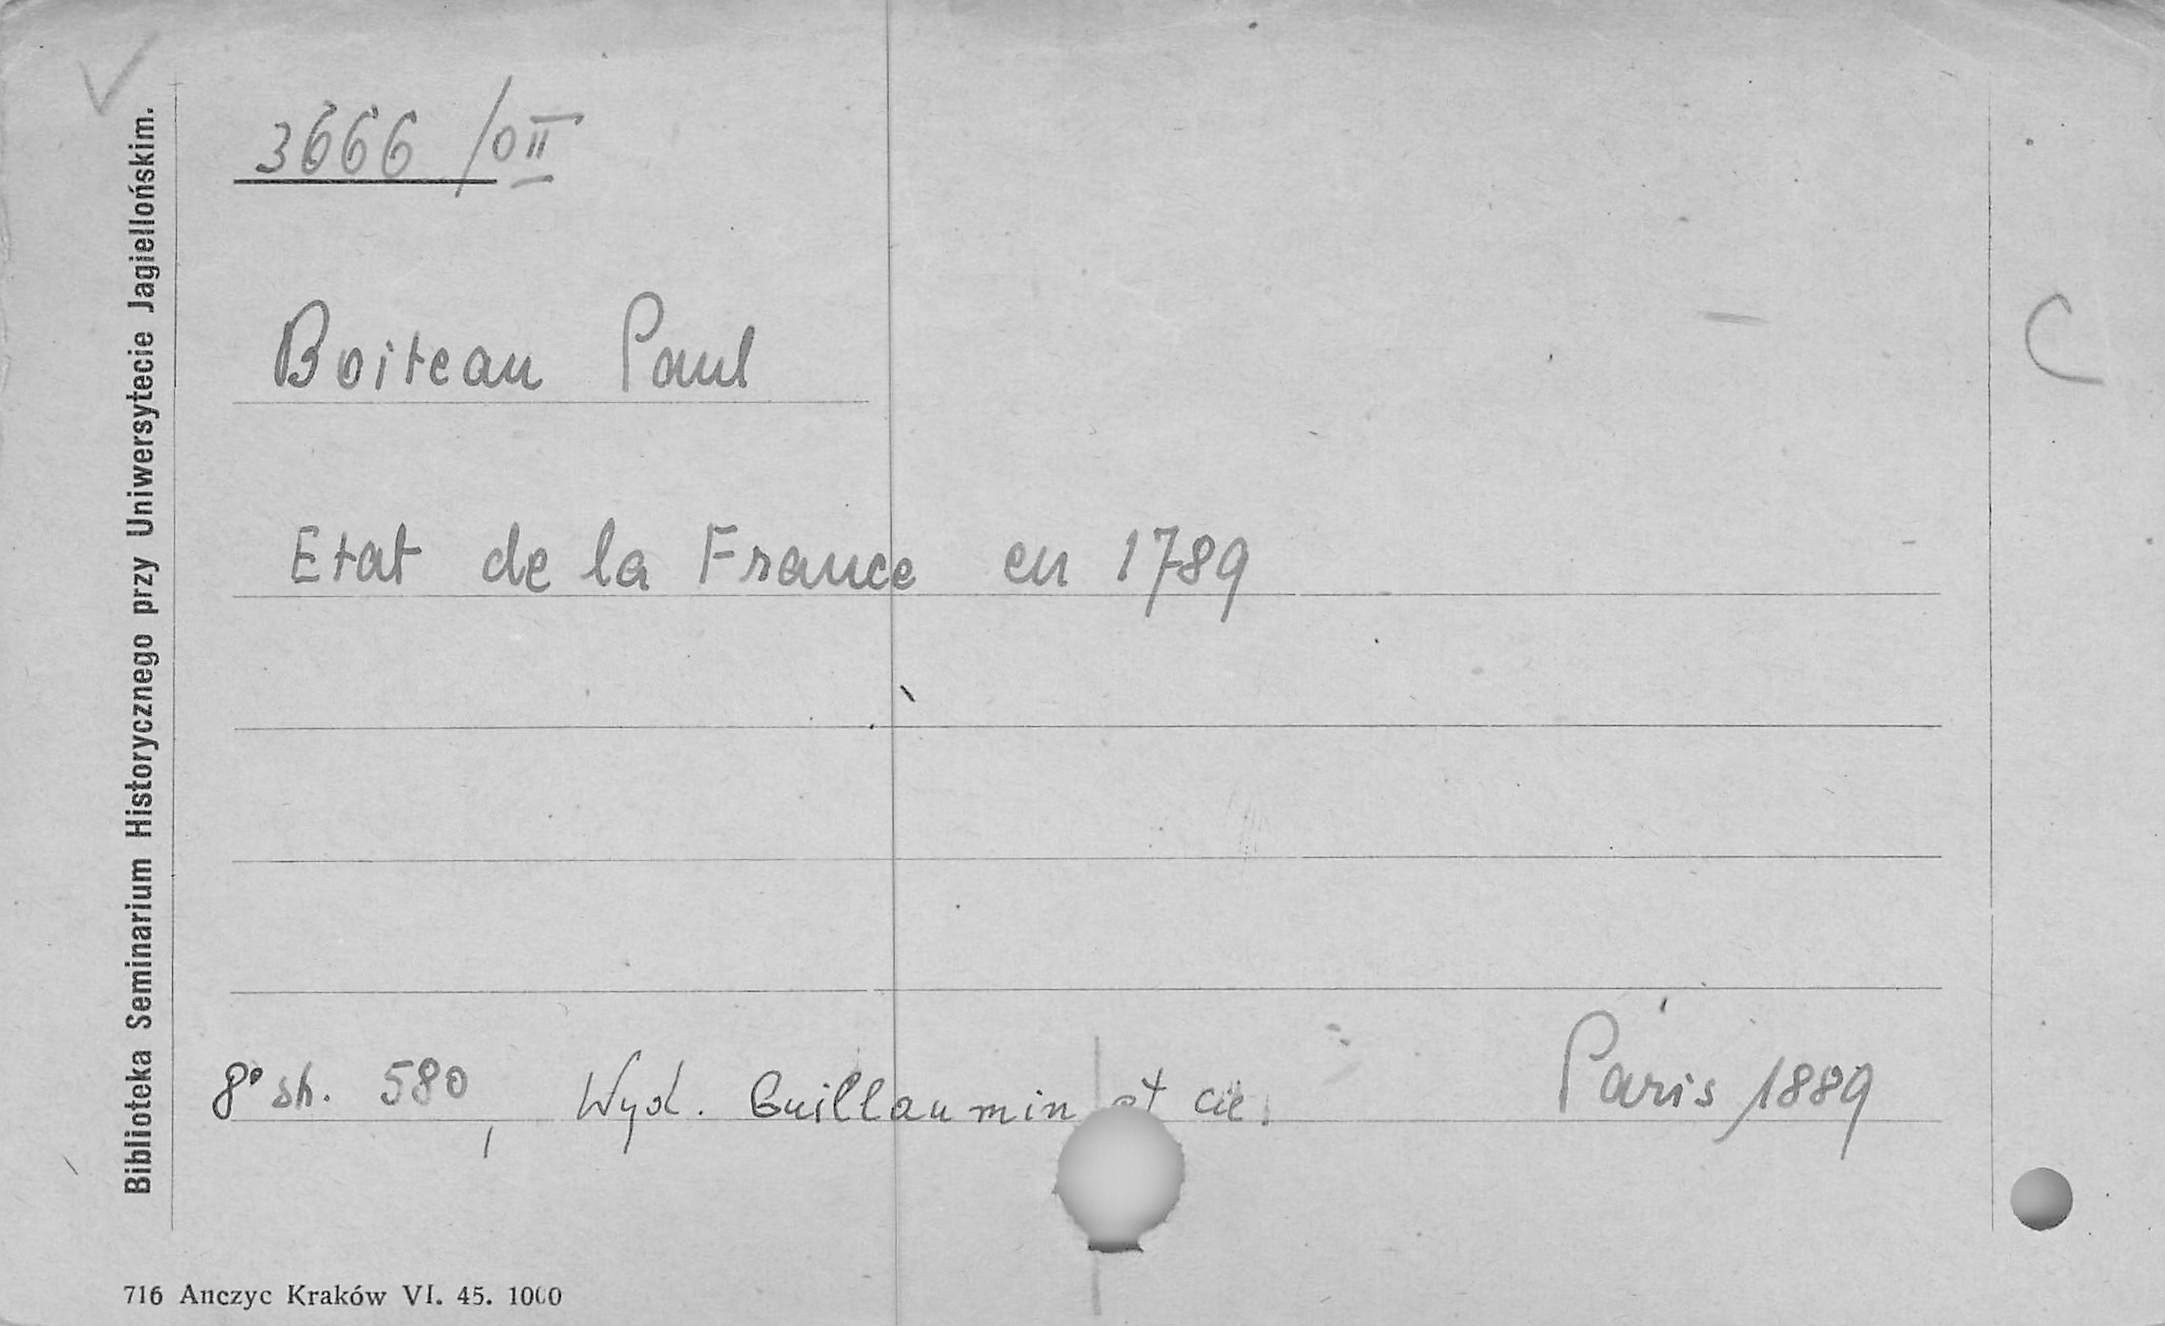 Biblioteka Seminarium Historycznego przy Uniwersytecie Jagiellońskim.
3666 /OII
C
Boiteau Paul
Etat de la France en 1789
8° str. 580, Wyd. Guillaumin et cie. Paris 1889
716 Anczyc Kraków VI. 45. 1000